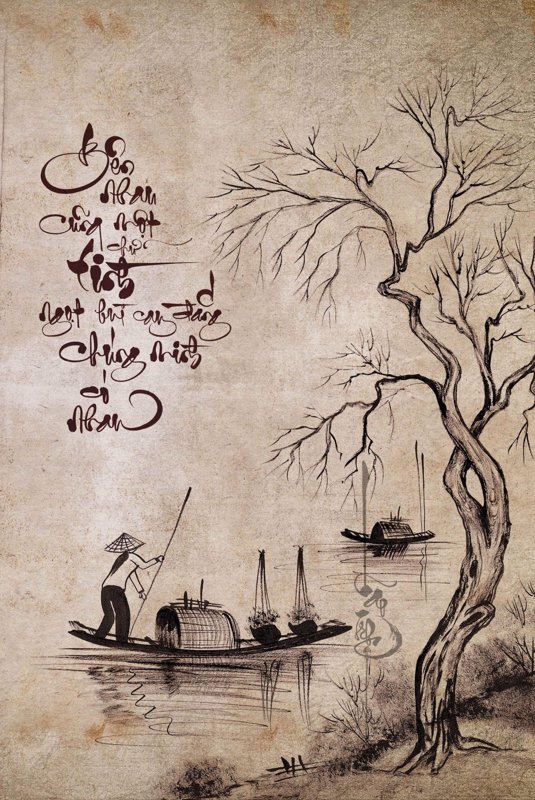 Bên
Nhau
cũng một
chữ
tình
ngọt bùi cay đắng
Chúng mình
có
Nhau